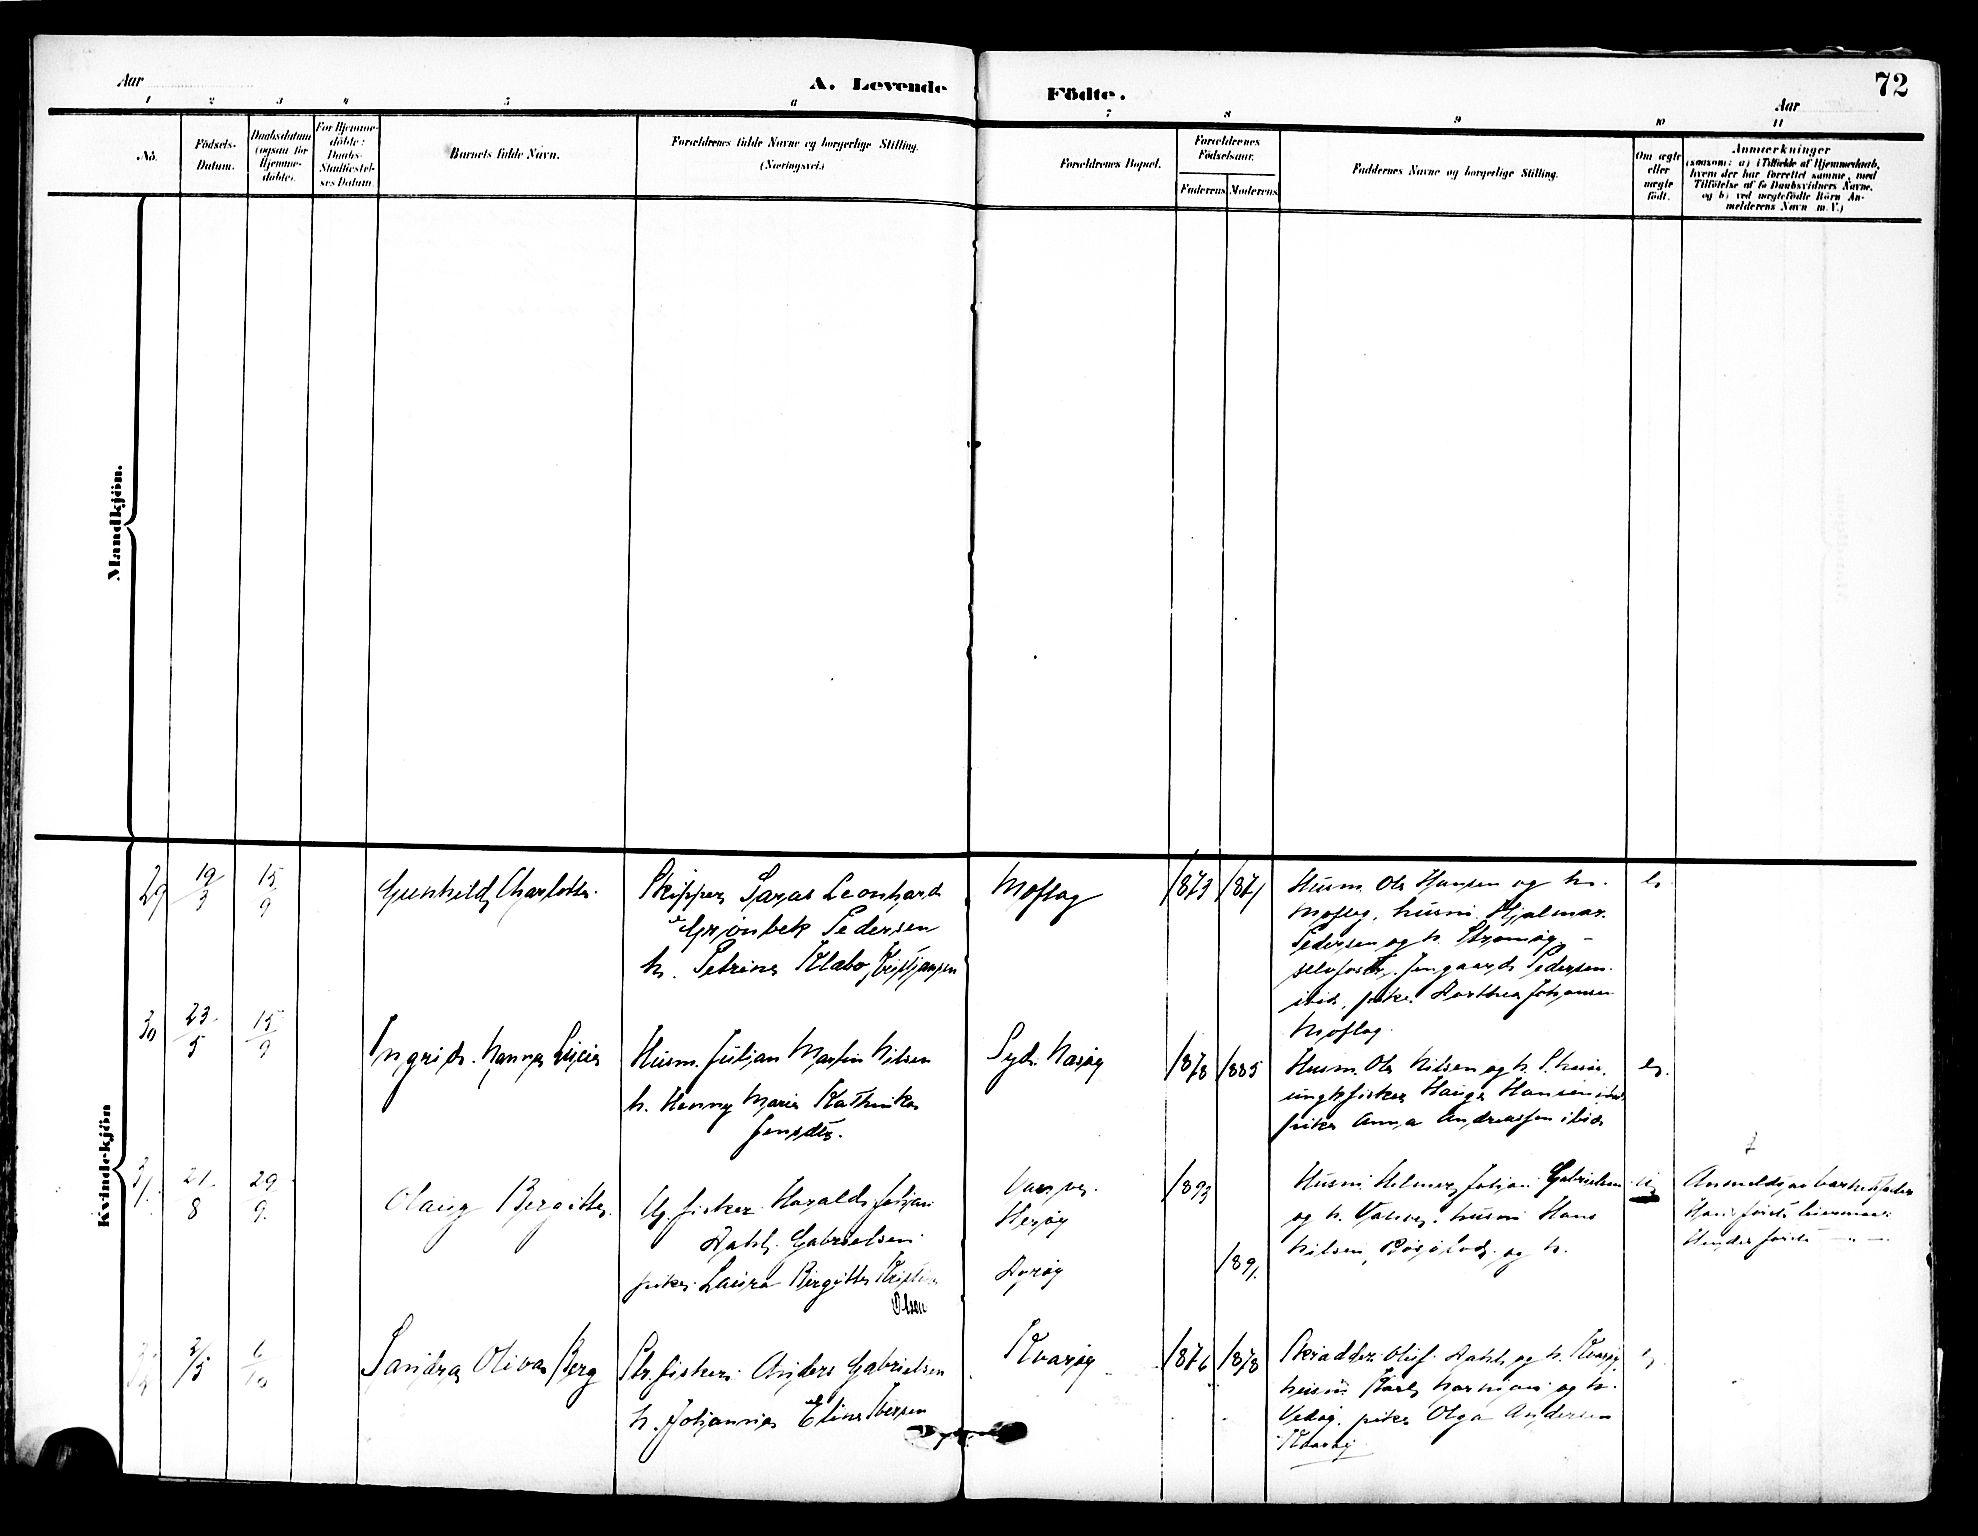 72
Aar
A. Levende Födte.
Aar
1 2 3 4 5 6 7 8 9 10 11
No.
Födsels-
Datum.
Daabsdatum
(ogsaa for
Hjemme-
döbte).
For Hjemme-
döbte:
Daabs-
Stadfæstel-
ses Datum.
Barnets fulde Navn.
Forældrenes fulde Navne og borgerlige Stilling.
(Næringsvei.)
Forældrenes Bopæl.
Forældrenes
Födselsaar.
Faderens Moderens
Faddernes Navne og borgerlige Stilling.
Om ægte
eller
uægte
födt.
Anmærkninger
(saasom: a) i Tilfælde af Hjemmedaab,
hvem der har forrettet samme, med
Tilföielse af to Daabsvidners Navne,
og b) ved uægtefödte Börn An-
melderens Navn m. V.)
Mandkjön.
Kvindekjön
29 19/3 15/9 Gunhild Charlotte.
Skipper Leonhard
Grønbek Pedersen
h. Petrine Klabo Kristjansen
Moflag
1873 1871
Husm. Ole Hansen og h.
Moflag, husm. Hjalmar
Pedersen og h.
Pedersen
ibid, pike Dorthea Johansen
Moflag.
30 23/5 15/9 Ingrid Hanna Lucie
Husm. Julian Martin Nilsen
h. Henny Marie Kathinka
Jensdtr.
Sydr. Næsøy
1878 1885
Husm. Ole Nilsen og h.
ungkfisker Hauge Hansen ibid
pike Anna Andreassen ibid
31. 21/8 29/9 Olaug Bergitte.
Ug. fisker Harald Johan
Dahl Gabrielsen
pike Laura Birgitte Kristine
Olsen
Herøy
Dørøy
1893
1891
Husm. Helmer Johan Gabrielsen
og h. husm Hans
Nilsen, og h.
Anmeldt av barnets fader
Hans første leiermaal
Hendes første — " —
2/5 6/10 Sandra Oliva Berg
Str.fisker Anders Gabrielsen
h. Johanna Eline Iversen
Kvarøy
1876 1878
Skrædder Oluf Dahl og h. Kvarøy
husm Karl Normann og h.
Vedøy, pike Olga Andersen
Kvarøy